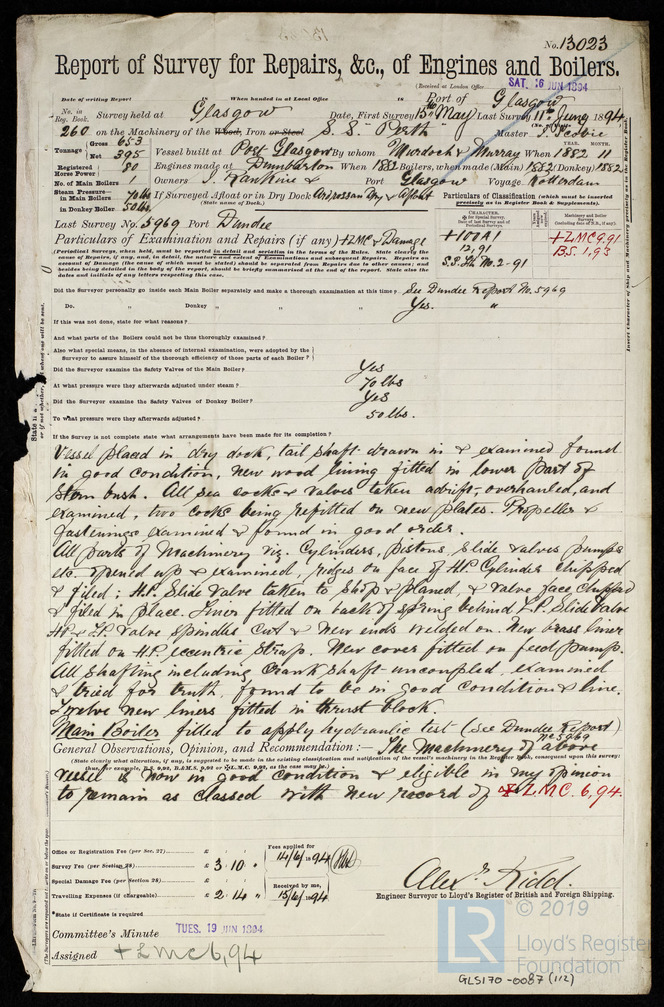 No. 13023
Report of Survey for Repairs, &c., of Engines and Boilers.
(Received at London Office SAT. 16 JUN 1894
Date of writing Report When handed in at Local Office to Port of Glasgow
No. in Reg. Book. Survey held at Glasgow Date, First Survey 15th May Last Survey 11th June 1894
260 on the Machinery of the Wood, Iron or Steel S.S. "Perth" Master
Tonnage Gross 653 Net 395 Vessel built at Port Glasgow By whom Murdoch & Murray When YEAR. 1882 MONTH. 11
Registered Horse Power 80 Engines made at Dumbarton When 1882 Boilers, when made (Main) 1882 (Donkey) 1882
No. of Main Boilers Owners J. Rankine & Port Glasgow Voyage Rotterdam
Steam Pressure in Main Boilers 70 lbs If Surveyed Afloat or in Dry Dock Dry & Afloat
(State name of Dock.)
in Donkey Boiler 50 lbs
Particulars of Classification (which must be inserted precisely as in Register Book & Supplements).
Last Survey No. 5969 Port Dundee
CHARACTER.
+100A1
12,91
S.S. No. 2-91
+LMC 9,91
B.S. 1,93
Particulars of Examination and Repairs (if any) +LMC & Damage
Did the Surveyor personally go inside each Main Boiler separately and make a thorough examination at this time? See Dundee Report No. 5969
Do. " Donkey " " " Yes. "
If this was not done, state for what reasons?
And what parts of the Boilers could not be thus thoroughly examined?
Also what special means, in the absence of internal examination, were adopted by the
Surveyor to assure himself of the thorough efficiency of those parts of each Boiler?
Did the Surveyor examine the Safety Valves of the Main Boiler? Yes
At what pressure were they afterwards adjusted under steam? 70 lbs
Did the Surveyor examine the Safety Valves of Donkey Boiler? Yes
To what pressure were they afterwards adjusted? 50 lbs.
If the Survey is not complete state what arrangements have been made for its completion?
Vessel placed in dry dock, tail shaft drawn in & examined found
in good condition, new wood lining fitted in lower part of
stern bush. All sea cocks & valves taken adrift, overhauled, and
examined, two cocks being refitted on new plates. Propeller &
fastenings examined & found in good order.
All parts of Machinery viz. Cylinders, pistons, slide valves pumps
etc. opened up & examined, ridges on face of H.P. Cylinder chipped
& filed; H.P. Slide Valve taken to shop & planed, & valve face chipped
& filed in place. Liner fitted on back of spring behind L.P. Slide Valve
H.P. & L.P. valve spindles cut & new ends welded on. New brass liner
fitted on H.P. eccentric strap. New cover fitted on feed pump.
All shafting including Crank shaft uncoupled, examined
& tried for truth, found to be in good condition & line.
Twelve new liners fitted in thrust block.
Main Boiler filled to apply hydraulic test (see Dundee Report
No 5969)
General Observations, Opinion, and Recommendation:— The machinery of above
(State clearly what alteration, if any, is suggested to be made in the existing classification and notification of the vessel's machinery in the Register Book, consequent upon this survey:
vessel is now in good condition & eligible in my opinion
to remain as classed with new record of +LMC. 6,94.
Office or Registration Fee (per Sec. 27) £
Survey Fee (per Section 28) £ 3 : 10 : "
Special Damage Fee (per Section 28) £
Travelling Expenses (if chargeable) £ 2 : 14 : "
Fees applied for 14/6/1894
Received by me, 15/6/1894
Alexr Kidd.
Engineer Surveyor to Lloyd's Register of British and Foreign Shipping.
*State if Certificate is required
Committee's Minute TUES. 19 JUN 1894
Assigned +LMC 6,94
© 2019
LR Lloyd's Register
Foundation
GLS170-0087 (112)